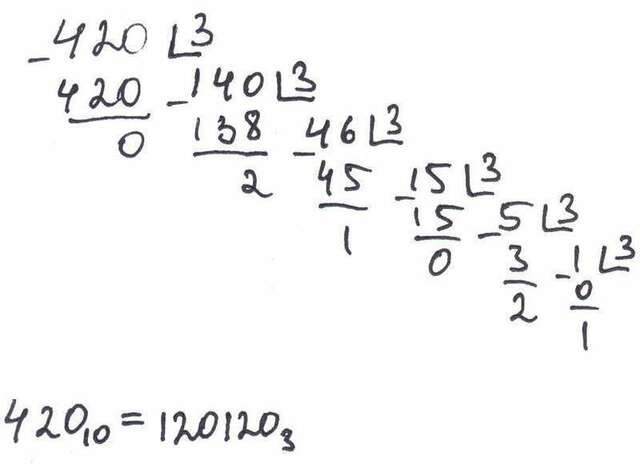 -420 ⌊3
420 -140 ⌊3
0 138 -46 ⌊3
2 45 -15 ⌊3
1 15 -5 ⌊3
0 3 -1 ⌊3
2 0
1
420₁₀ = 120120₃